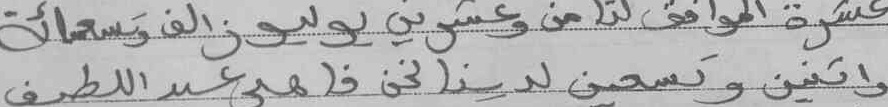 عشرة الموافق لثامن وعشرين يوليوز الف وتسعمائة
واثنين وتسعين لدينا نحن فاهي عبد اللطيف